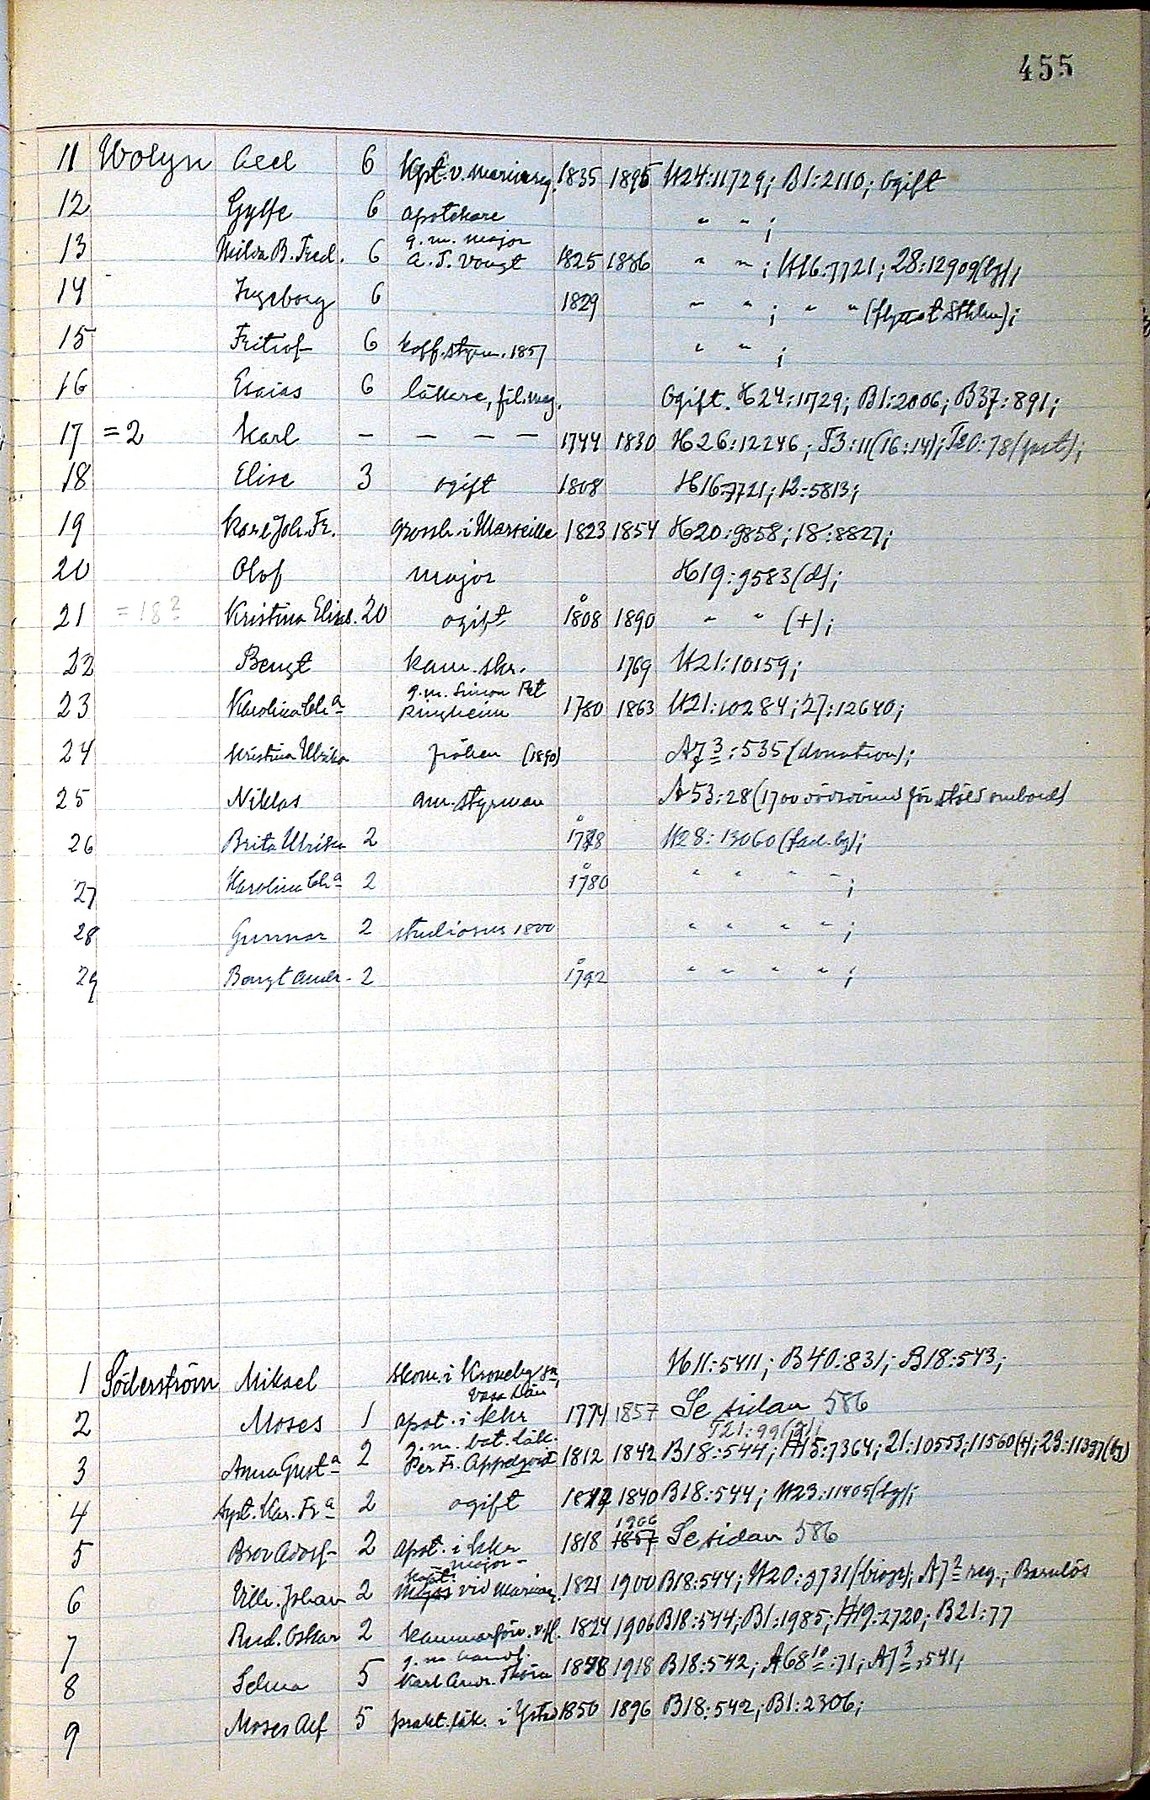 455
11 Wolyn Axel 6 Kpt. v. marinreg. 1835 1895 H24:11729; B1:2110; Ogift
12 Gylfe 6 apotekare " " ;
g.m. major
13 Hilda B. Fred. 6 A. T. Vougt 1825 1886 " " ; H16:7721; 28:12909(bg);
14 Ingeborg 6 1829 " " ; " " (flyttat Sthlm);
15 Fritiof 6 koff. styrm. 1857 " " ;
16 Esaias 6 läkare, fil. mag. Ogift. H24:11729; B1:2006; B37:891;
17 =2 Karl – – – – 1744 1830 H26:12246; T3:11(16:14); T20:78
18 Elise 3 ogift 1808 H16:7721; 12:5813;
19 Karl Joh. Fr. grossh. i Marseille 1823 1854 H20:9858; 18:8827;
20 Olof major H19:9583(d);
21 =18? Kristina Elisab. 20 ogift 1808 1890 " " (+);
22 Bengt kam. skr. 1769 H21:10159;
g.m. Simon Pet
23 Karolina Ch:a Ringheim 1780 1863 H21:10284; 27:12640;
24 Kristina Ulrika fröken (1890) A7 3:535 (donation);
25 Niklas am. styrman A53:28 (1700 för stöld ombord)
26 Brita Ulrika 2 1778 H28:13060 (fad. bg);
27 Karolina Ch:a 2 1780 " " " " ;
28 Gunnar 2 studiosus 1800 " " " " ;
29 Bengt Andr. 2 1792 " " " " ;
1 Söderström Mikael skom. i Kroneby sn, H11:5411; B40:831; B18:543;
Vasa län
2 Moses 1 apot. i Khr 1774 1857 Se sidan 586
g.m. bat. läk. T21:99
3 Anna Gust:a 2 Per Fr. Appelqvist 1812 1842 B18:544; H15:7364; 21:10553; 11560(+); 23:11397(bg)
4 Sept. Kar. Fr:a 2 ogift 1840 B18:544; H23:11405(bg);
1906
5 Bror Adolf 2 apot. i Khr 1818 1857 Se sidan 586
kapt. major
6 Vilh. Johan 2 vid Marinreg. 1821 1900 B18:544; H20:9731(biogr); A7 2 reg.; Barnlös
7 Rud. Oskar 2 kammarförv. v. fl. 1824 1906 B18:544; B1:1985; H19:2720; B21:77
g.m. handl.
8 Selma 5 Karl Andr. Thörn 1848 1918 B18:542; A68 10:71; A7 3:541;
9 Moses Alf 5 prakt. läk. i Ystad 1850 1896 B18:542; B1:2306;